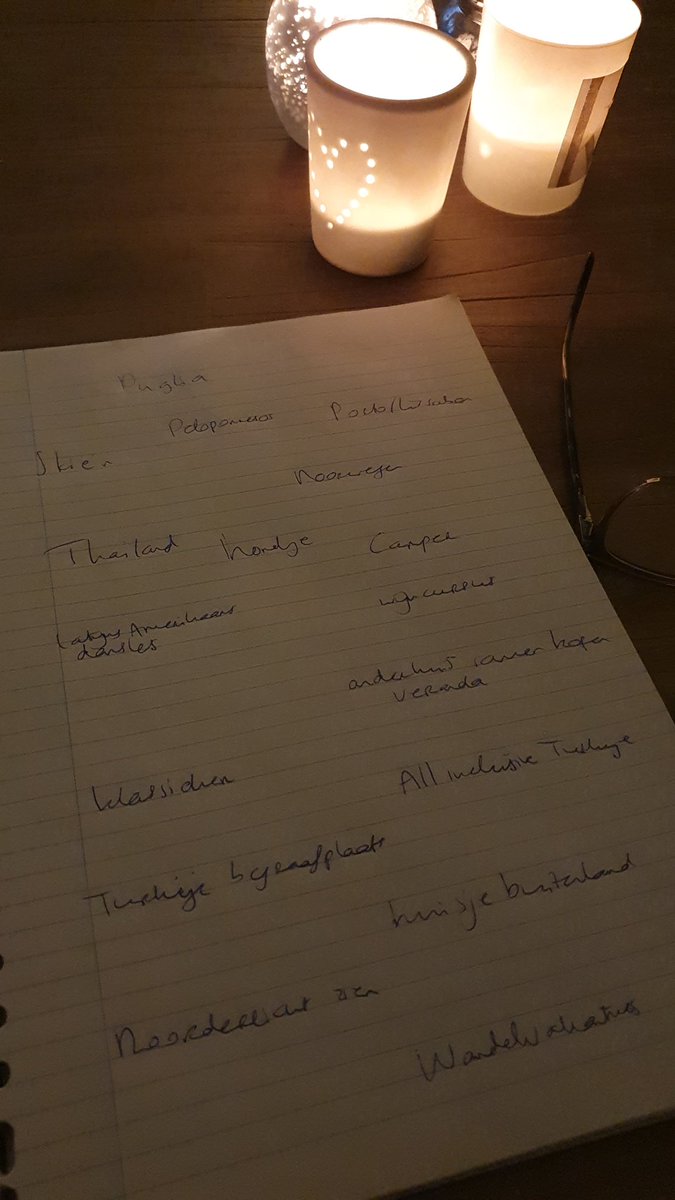 Puglia
Peloponesos Porto/Lissabon
Skien
Noorwegen
Thailand hondje Camper
Latijns Amerikaans
dansles
wijncursus
ander huis samen kopen
veranda
klassieken
All inclusive Turkije
Turkije begraafplaats
huisje buitenland
Noorderlicht zien
Wandelvakanties